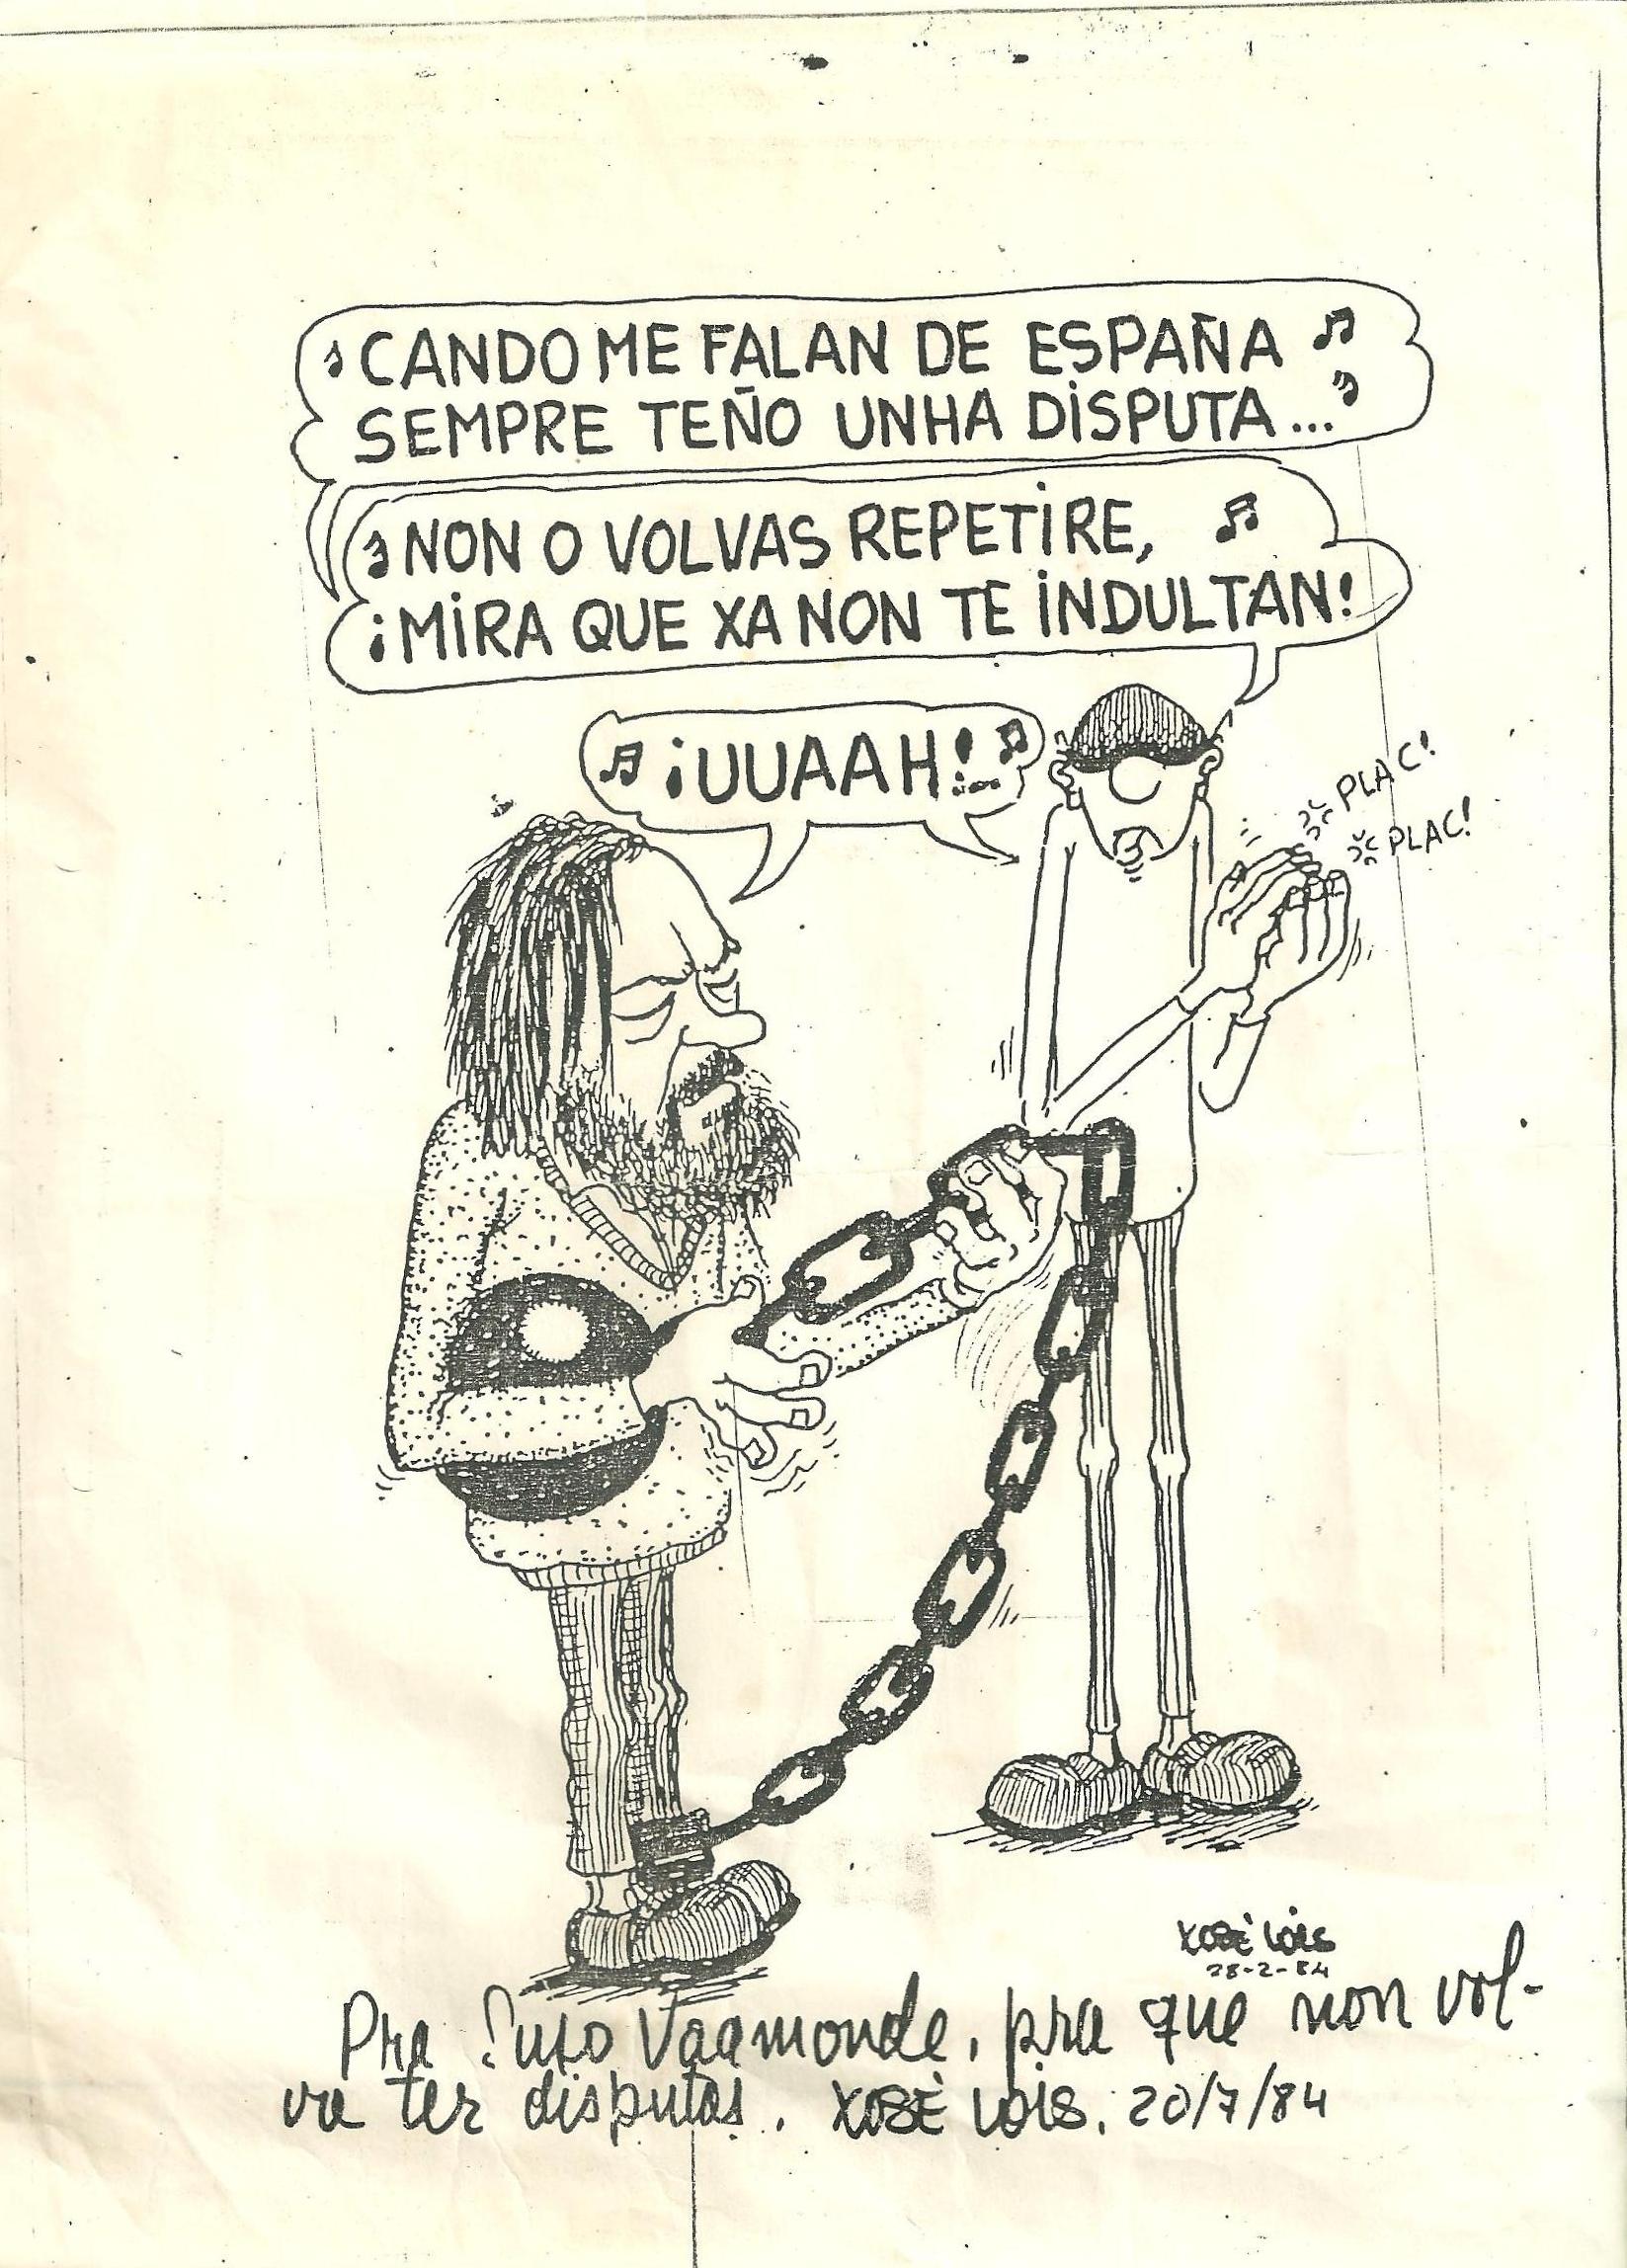 CANDO ME FALAN DE ESPAÑA
SEMPRE TEÑO UNHA DISPUTA...
NON O VOLVAS REPETIRE,
¡MIRA QUE XA NON TE INDULTAN!
¡UUAAH!...
PLAC!
PLAC!
XOSÈ LOIS
28-2-84
Pra Suso Vaamonde, pra que non vol-
va ter disputas. XOSÈ LOIS. 20/7/84